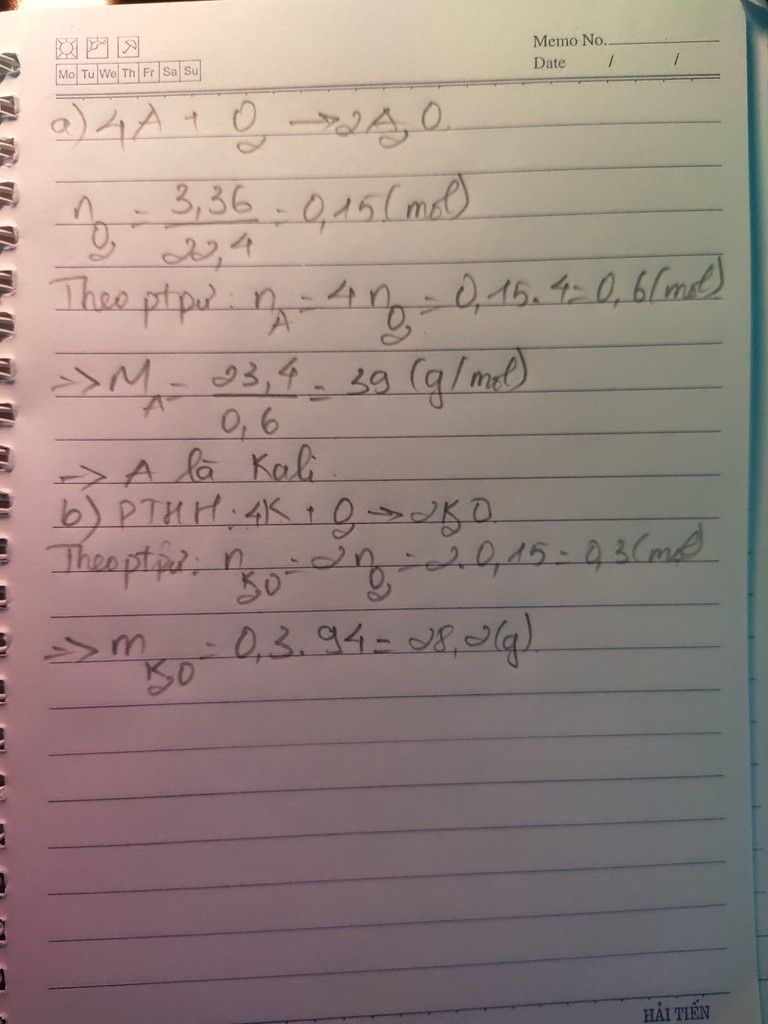 Memo No.
Mo Tu We Th Fr Sa Su
Date / /
a) 4A + O₂ → 2A₂O
n O₂ = 3,36 / 22,4 = 0,15 (mol)
Theo ptpứ: n A = 4 n O₂ = 0,15.4 = 0,6 (mol)
=> M A = 23,4 / 0,6 = 39 (g/mol)
-> A là Kali
b) PTHH: 4K + O₂ → 2K₂O
Theo ptpứ: n K₂O = 2 n O₂ = 2.0,15 = 0,3 (mol)
=> m K₂O = 0,3.94 = 28,2 (g)
HẢI TIẾN